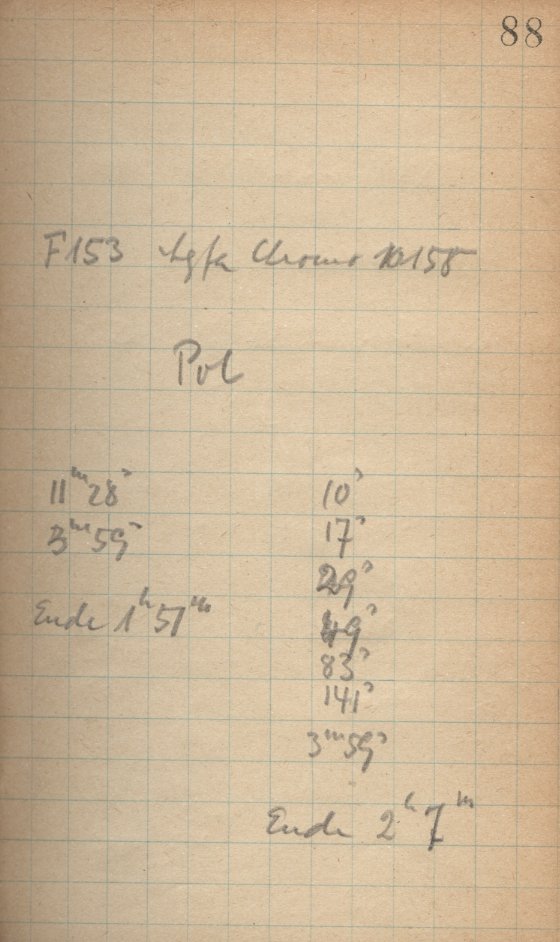 88
F153 Agfa Chromo 10158
Pol
11ᵐ28ˢ
3ᵐ59ˢ
Ende 1ʰ51ᵐ
10ˢ
17ˢ
29ˢ
49ˢ
83ˢ
141ˢ
3ᵐ59ˢ
Ende 2ʰ7ᵐ